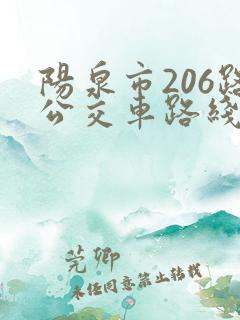 陽泉市206路
公交車路綫
莞鄉
未经同意禁止转载